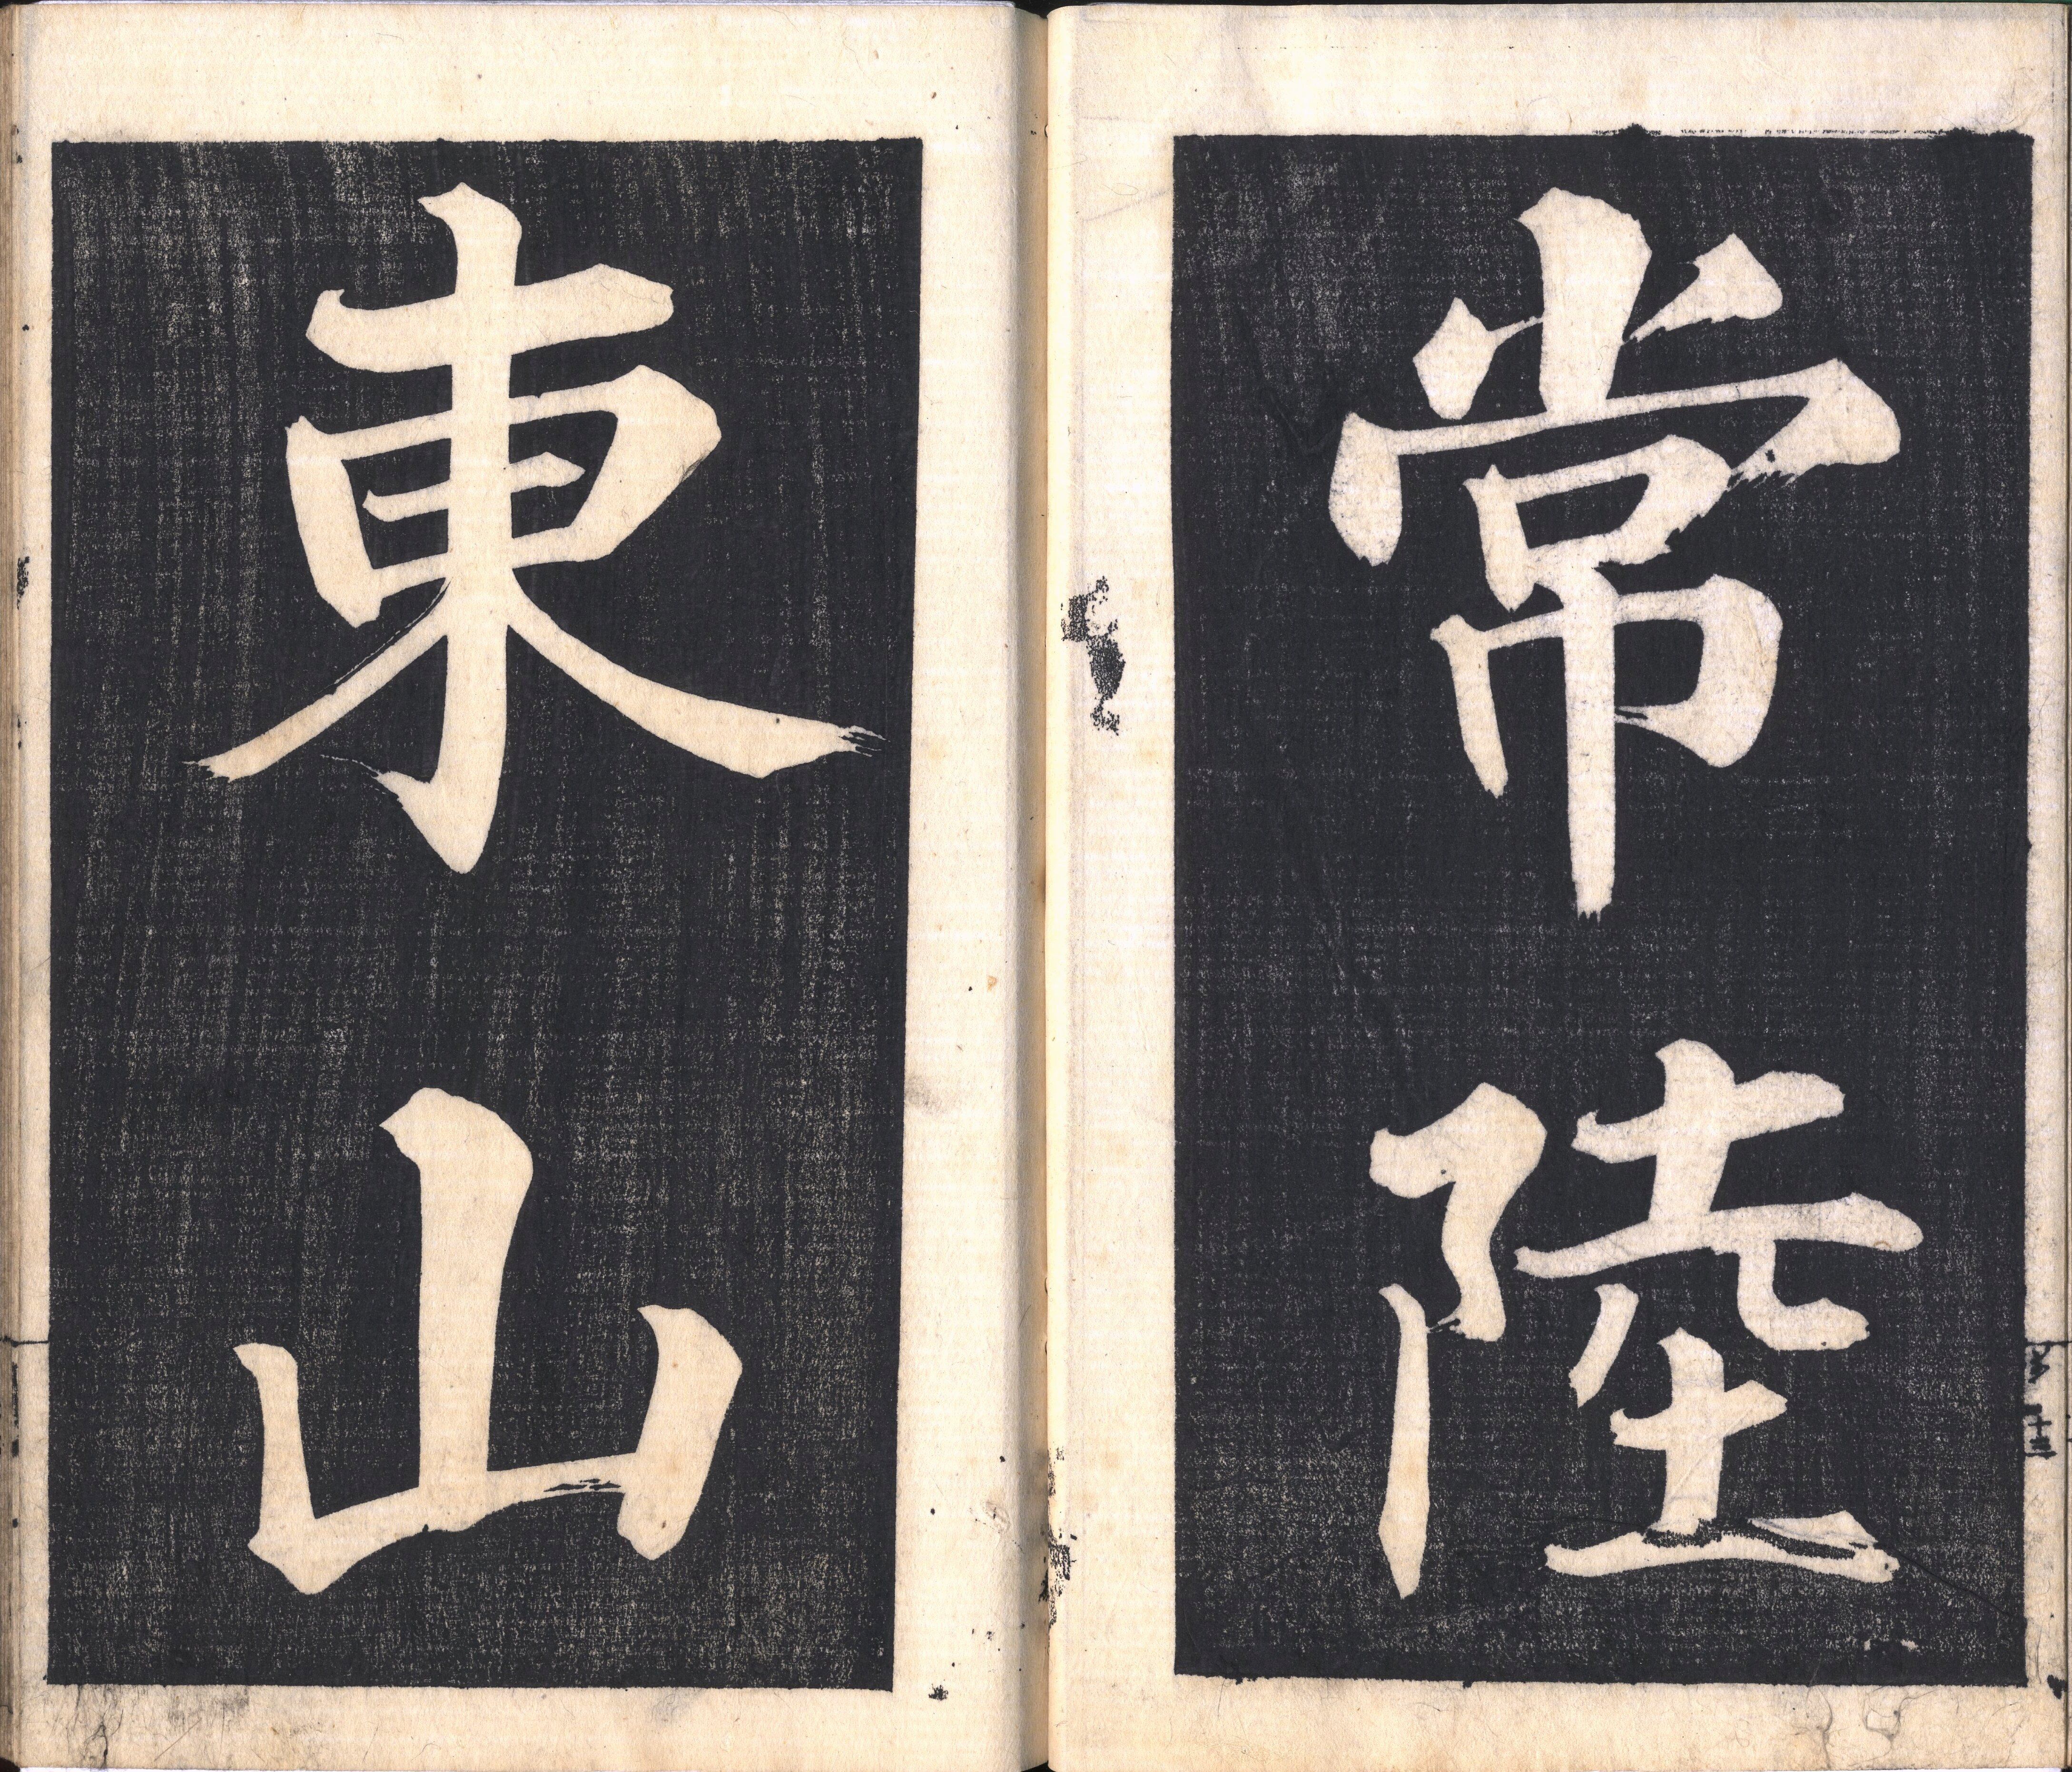 常陸
東山